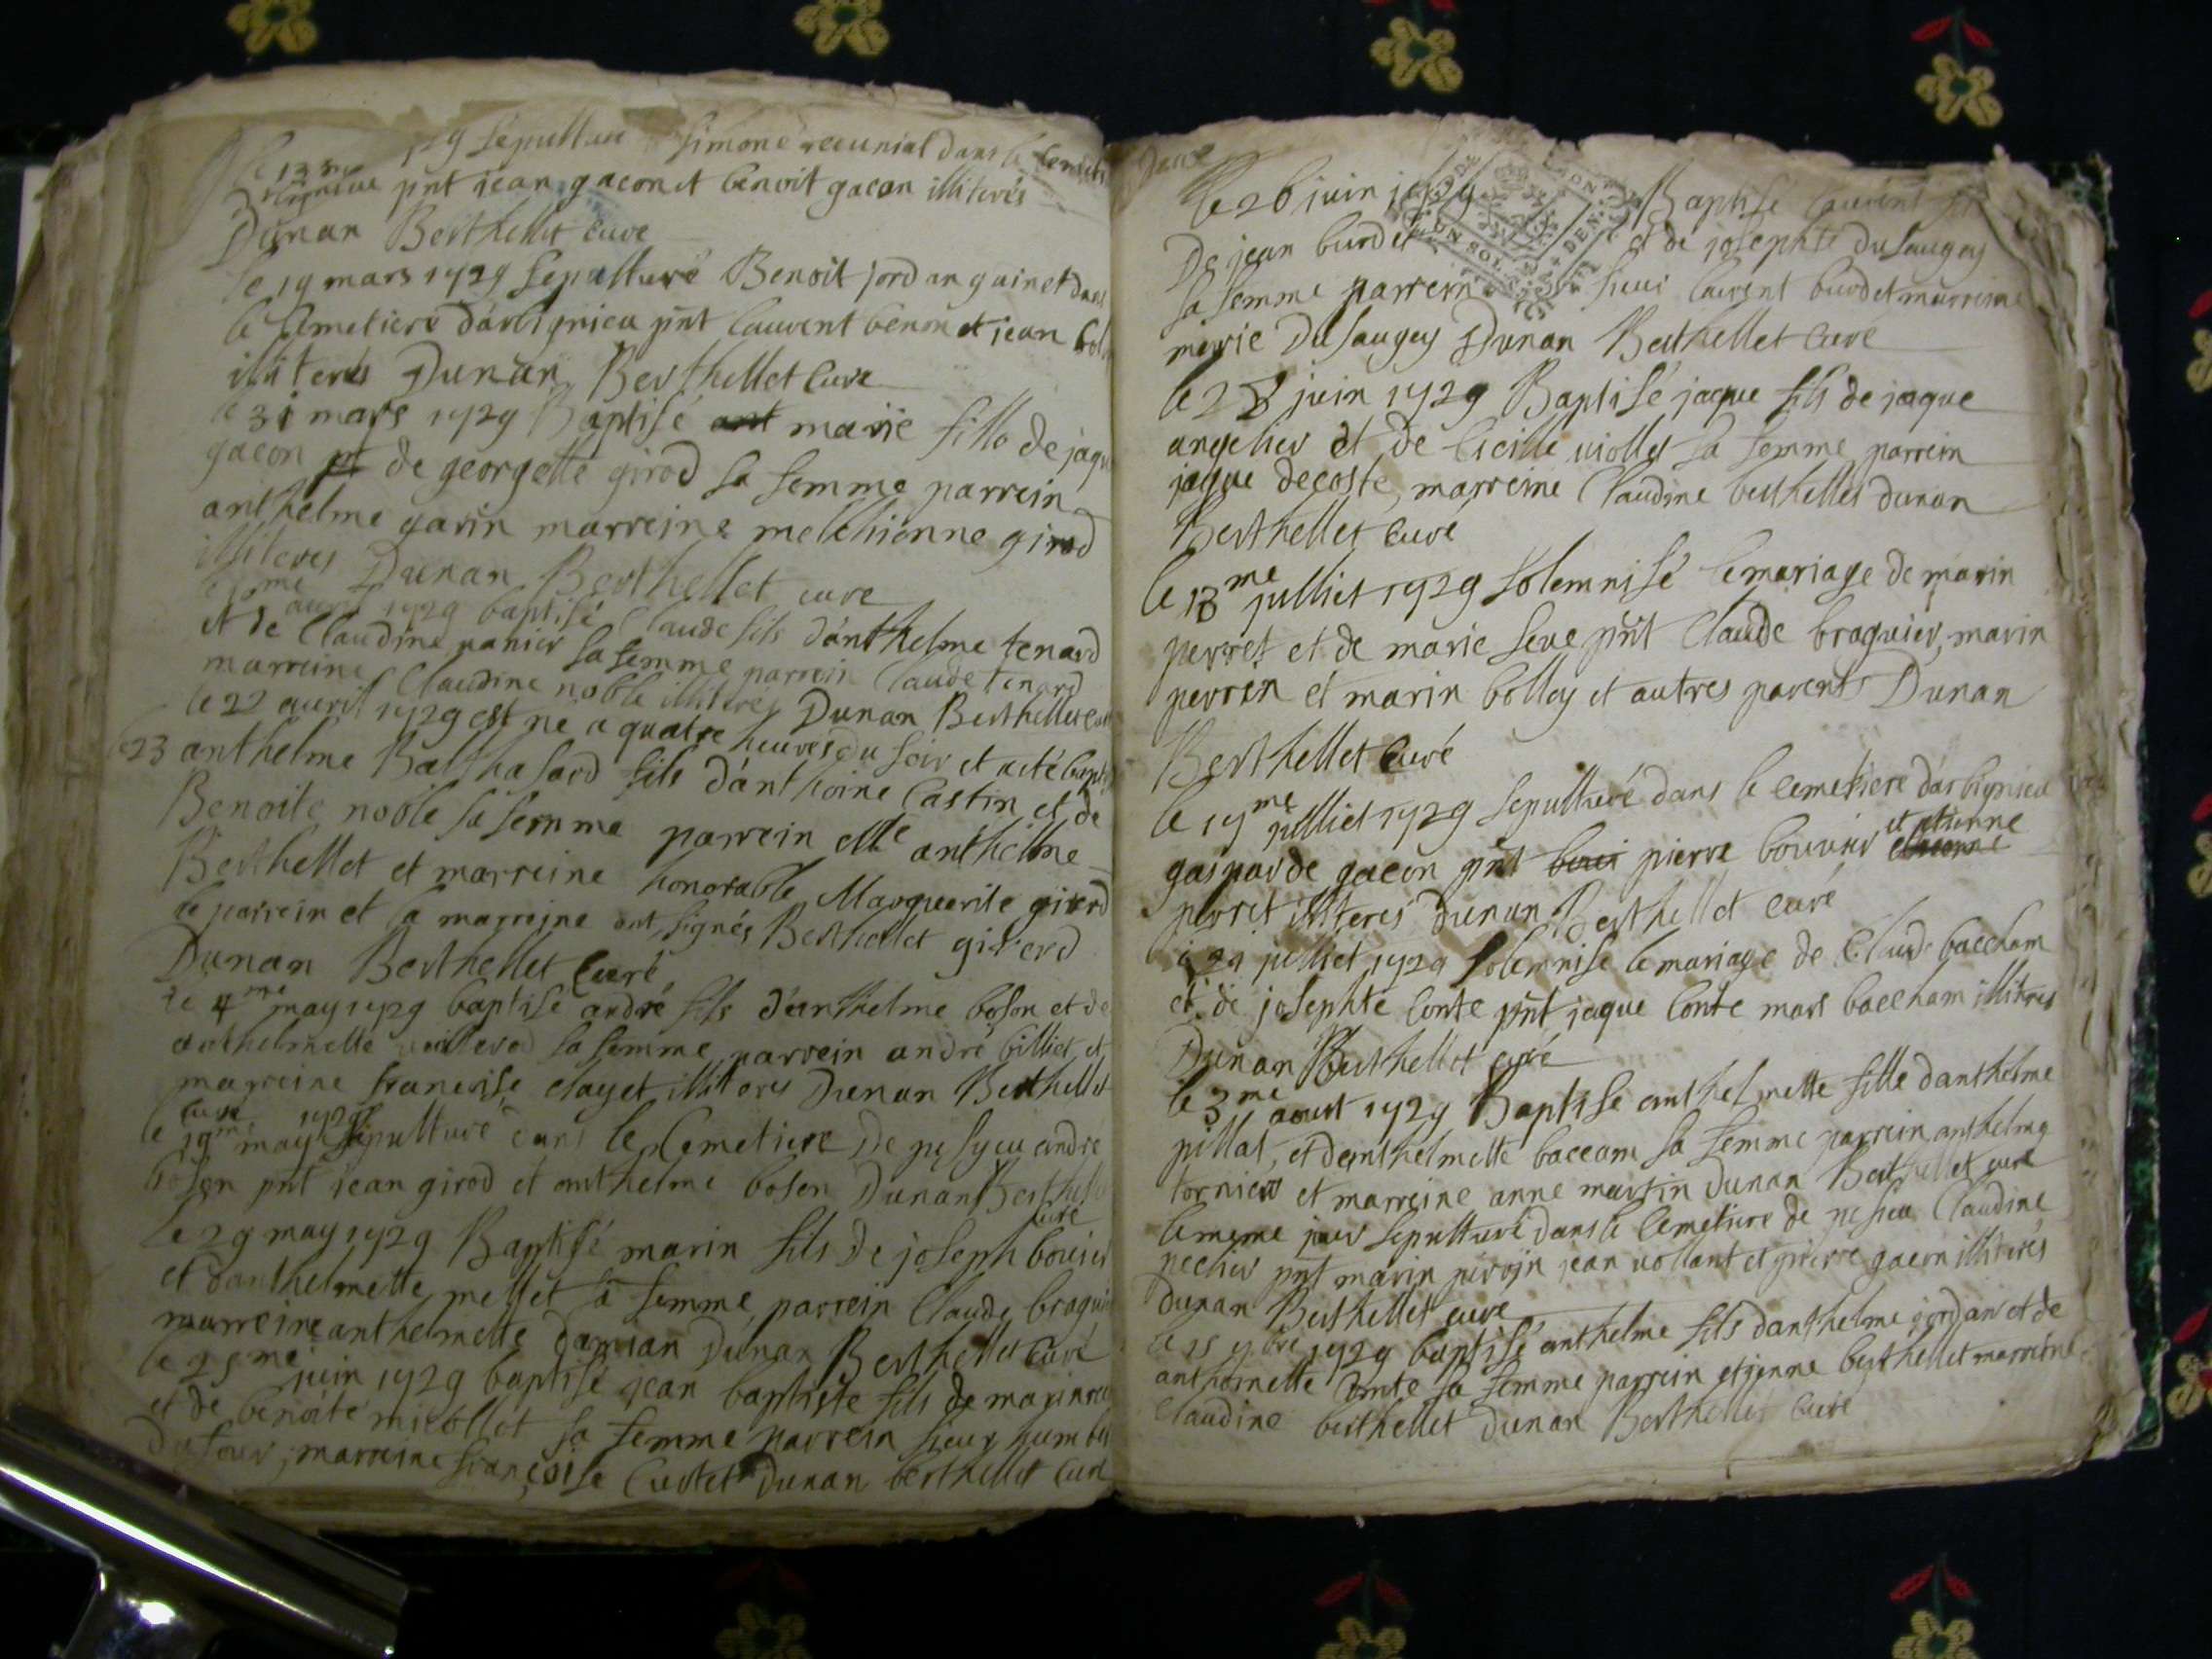 le 13me 1729 sepulturé simone recunial dans le
pnt jean gacon et benoit gacon illiterés
Dunan Berthellet curé
le 19 mars 1729 sepulturé Benoit jordan guinet dans
le Cemetiere d'arbignieu pnt laurent benon et jean
illiterés Dunan Berthellet curé
le 31 mars 1729 Baptisé marie fille de jaque
gacon et de georgette girod sa femme parrein
anthelme garin marreine melchionne girod
illiteres Dunan Berthellet curé
avril 1729 baptisé Claude fils d'anthelme tenard
et de Claudine panier sa femme parrein Claude tenard
marreine Claudine noble illiterés Dunan Berthellet curé
le 22 avril 1729 est né a quatre heures du soir et a eté baptisé
le 23 anthelme Balthasard fils d'anthoine Castin et de
Benoite noble sa femme parrein anthelme
Berthellet et marreine honorable Marguerite girerd
le parrein et la marreine ont signés Berthellet girerd
Dunan Berthellet Curé
le 4me may 1729 baptisé andré fils d'anthelme boson et de
anthelmette sa femme parrein andré billiet et
marreine francoise clayet illiteres Dunan Berthellet
curé
le 19me may 1729 sepulturé dans le Cemetiere de pesyeu andré
boson pnt jean girod et anthelme boson Dunan Berthellet
curé
le 29 may 1729 Baptisé marin fils de joseph bouier
et d'anthelmette mellet sa femme, parrein Claude braguier
marreine anthelmette damian Dunan Berthellet curé
le 25me juin 1729 baptisé jean baptiste fils de marin
et de benoite micollet sa femme parrein sieur humber
dufour, marreine françoise Curtet Dunan berthellet curé
le 26 juin 1729 Baptisé laurent fils
De jean burdet et de josephte dusaugey
sa femme parrein sieur laurent burdet marreine
marie Dusaugey Dunan Berthellet curé
le 28 juin 1729 Baptisé jaque fils de jaque
angelier et de Cicille viollet sa femme parrein
jaque decoste, marreine Claudine berthellet dunan
Berthellet curé
le 13me julliet 1729 solemnisé le mariage de marin
perret et de marie seve pnt Claude braguier, marin
perrin et marin bolley et autres parents Dunan
Berthellet Curé
le 19me julliet 1729 sepulturé dans le Cemetiere d'arbignieu
gasparde gacon pnt pierre bouvier et etienne
perret illiteres Dunan Berthellet curé
le 21 julliet 1729 solemnisé le mariage de Claude baccham
et de josephte Conte pnt jaque Conte mars baccham illiteres
Dunan Berthellet curé
le 3me aoust 1729 Baptisé anthelmette fille d'anthelme
pillat, et d'anthelmette baccam sa femme parrein anthelme
tornier et marreine anne martin Dunan Berthellet curé
le meme jour sepulturé dans le Cemetiere de pesieu Claudine
pecher pnt marin perrin jean vollant et pierre gacon illiterés
Dunan Berthellet curé
le 15 9bre 1729 baptisé anthelme fils d'anthelme jordan et de
anthoinette Conte sa femme parrein etienne berthellet marreine
Claudine berthellet Dunan Berthellet Curé